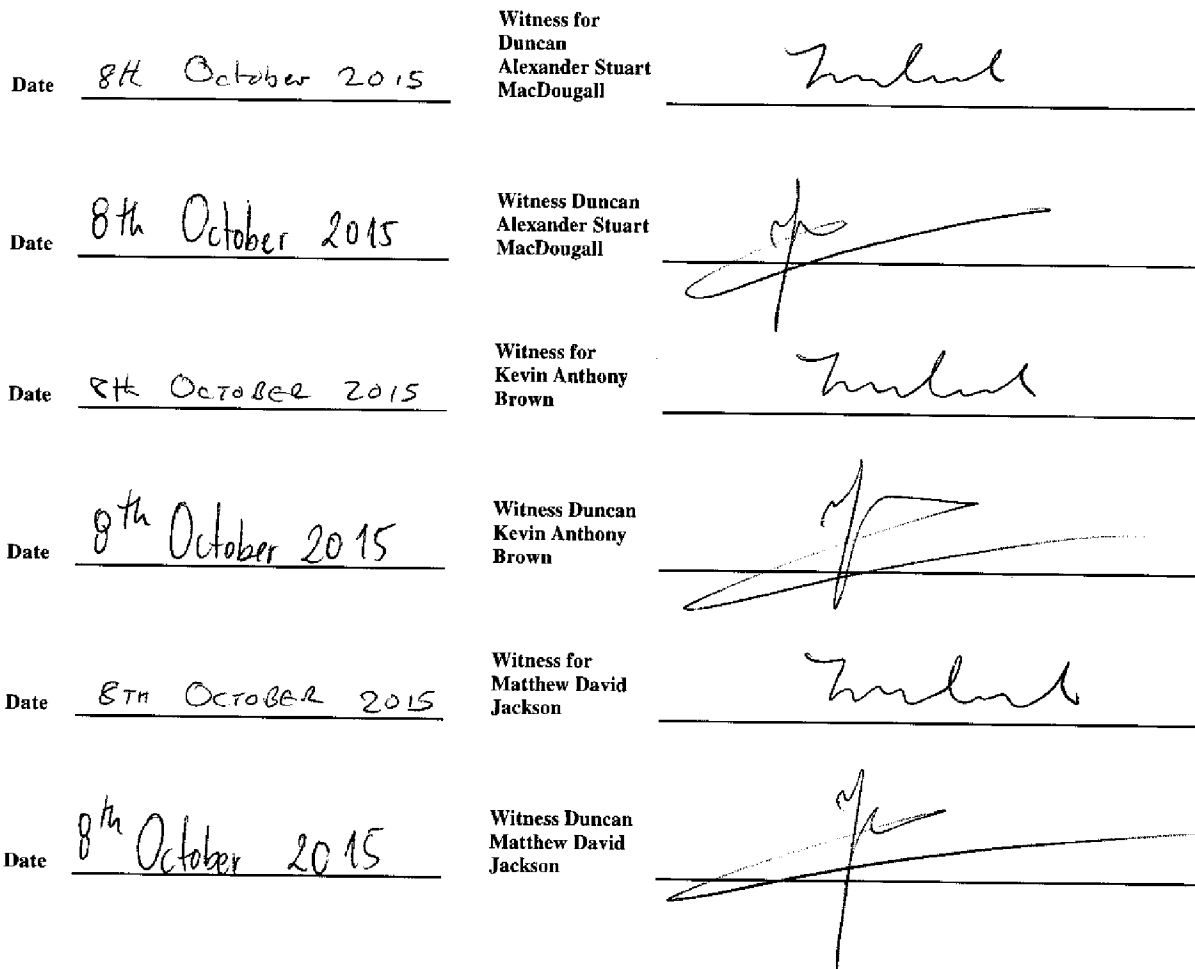 Date 8th October 2015 Witness for
Duncan
Alexander Stuart
MacDougall
Date 8th October 2015 Witness Duncan
Alexander Stuart
MacDougall
Date 8th OCTOBER 2015 Witness for
Kevin Anthony
Brown
Date 8th October 2015 Witness Duncan
Kevin Anthony
Brown
Date 8TH OCTOBER 2015 Witness for
Matthew David
Jackson
Date 8th October 2015 Witness Duncan
Matthew David
Jackson